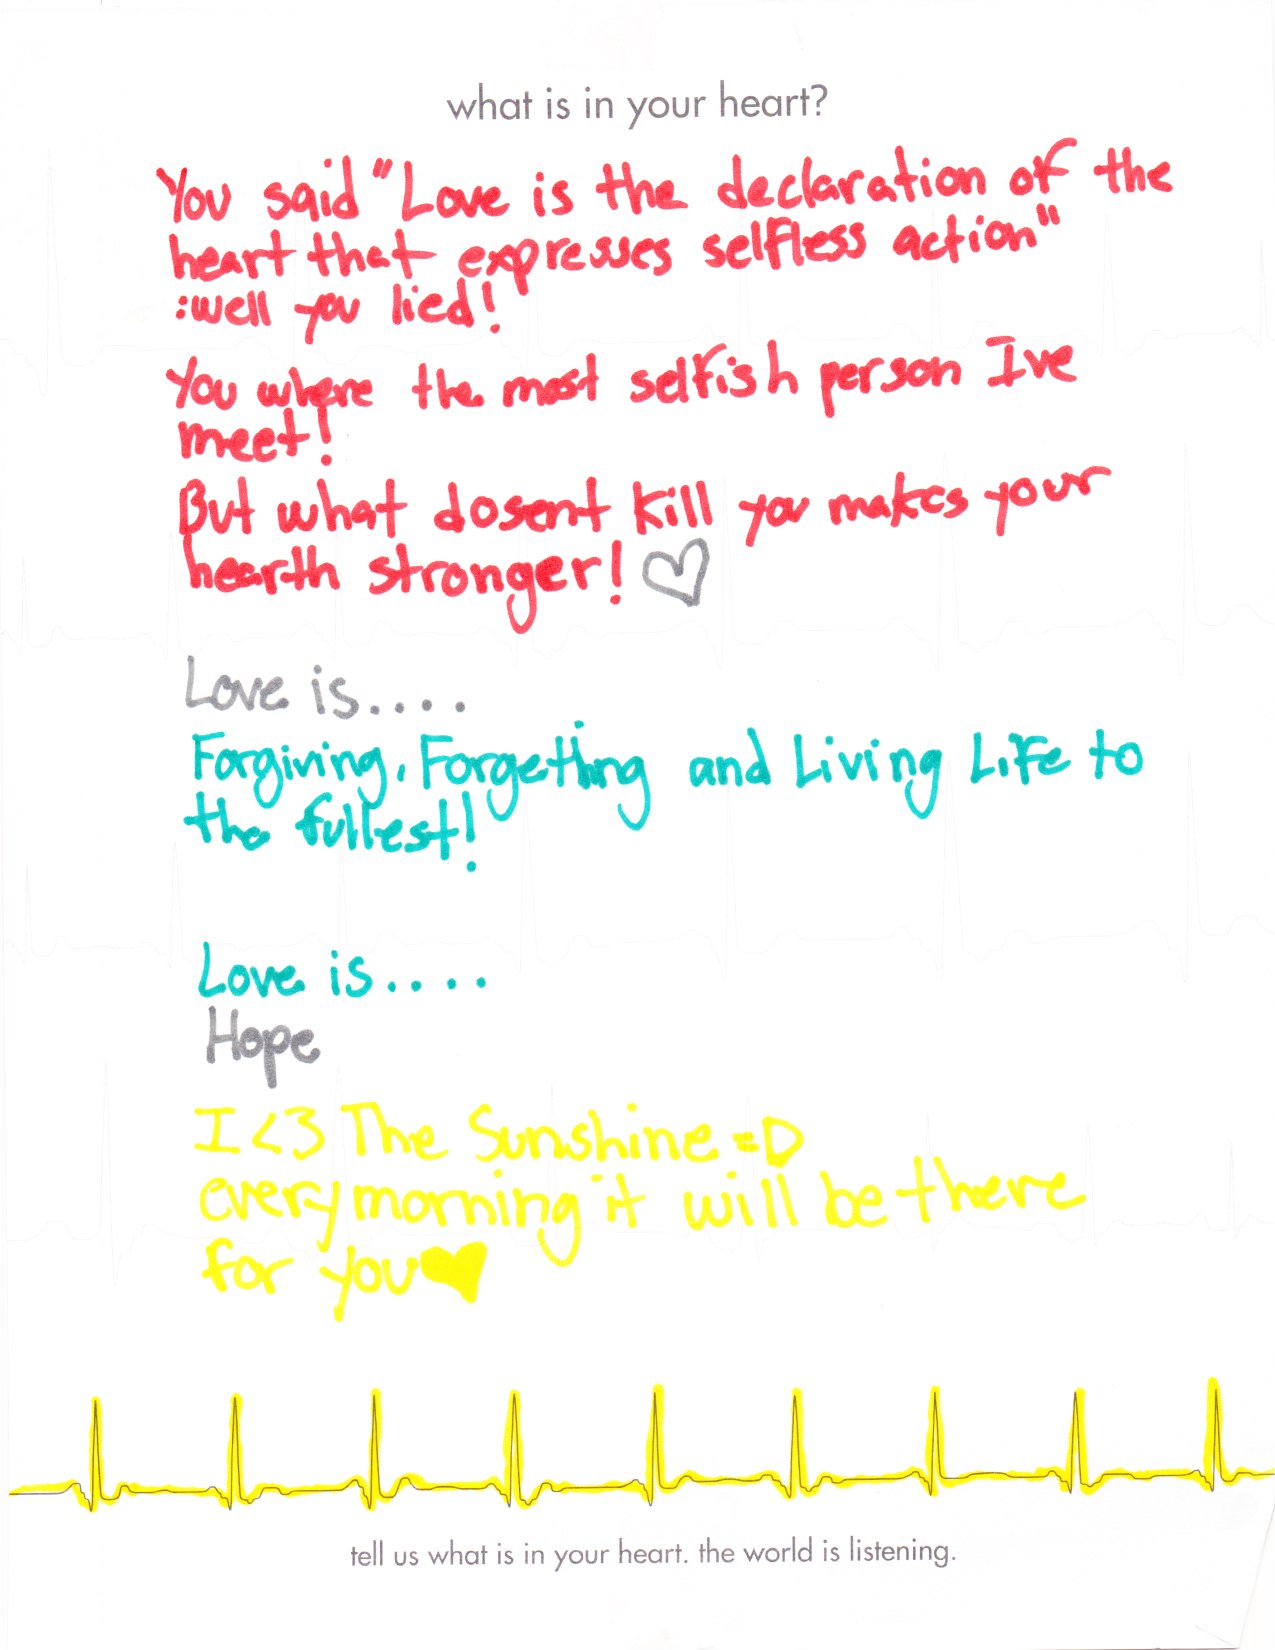 what is in your heart?
You said "Love is the declaration of the
heart that expresses selfless action"
:well you lied!
You where the most selfish person Ive
meet!
But what dosent kill you makes your
hearth stronger!
Love is....
Forgiving, Forgetting and Living Life to
the fullest!
Love is....
Hope
I <3 The Sunshine =D
every morning it will be there
for you
tell us what is in your heart. the world is listening.